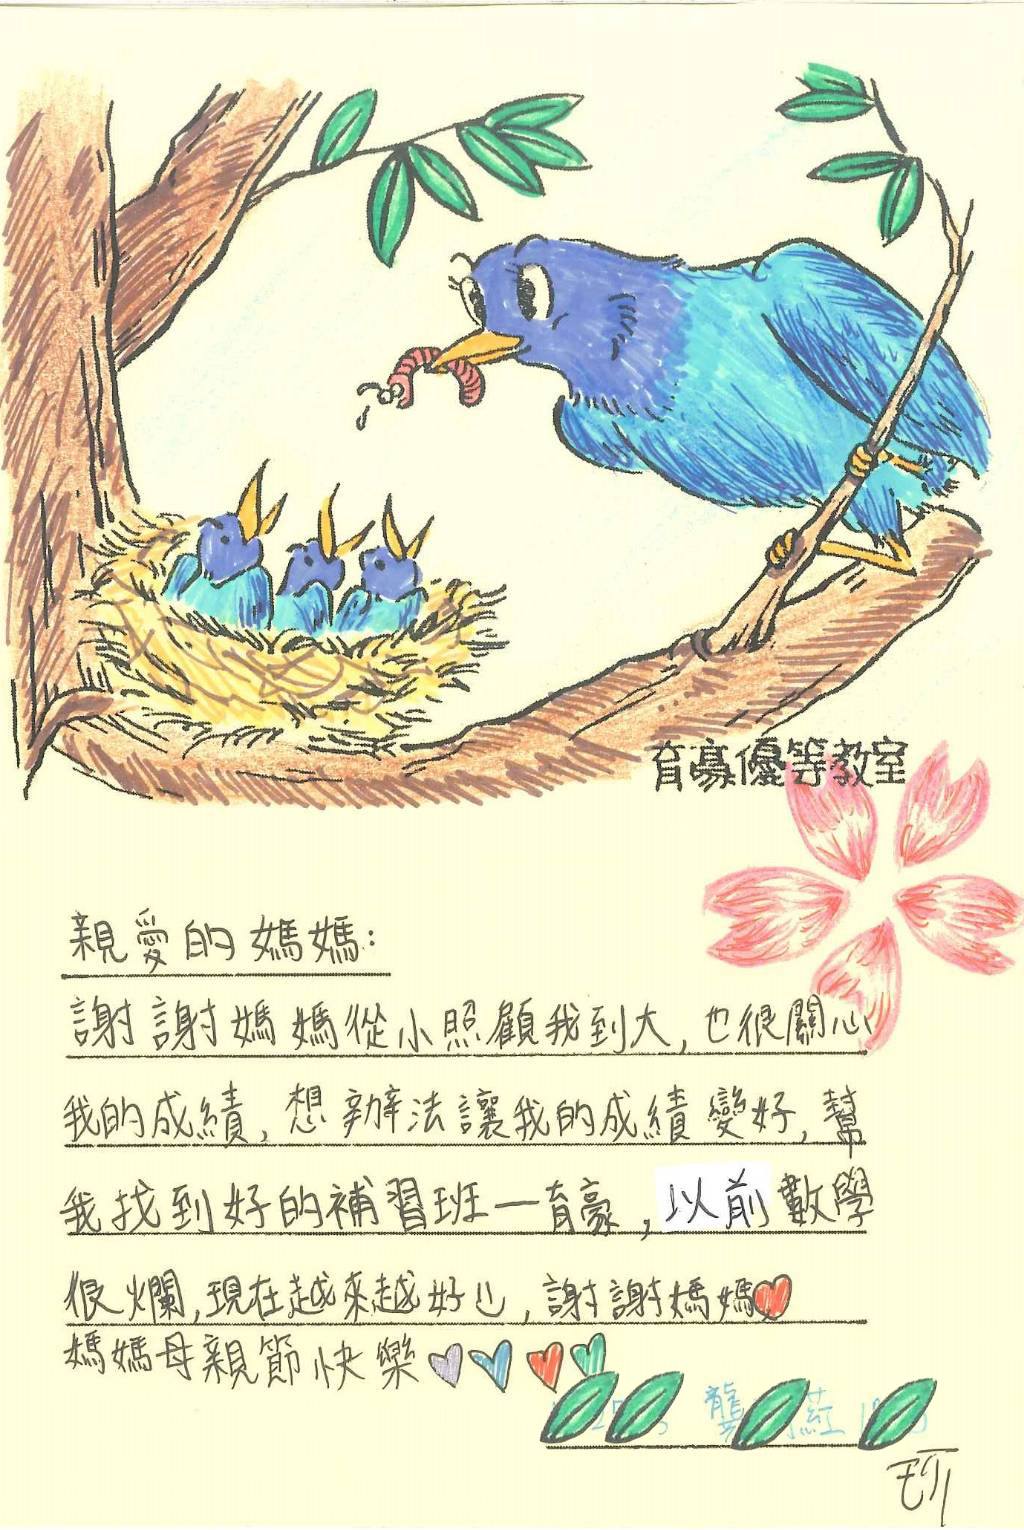 育豪優等教室
親愛的媽媽:
謝謝媽媽從小照顧我到大,也很關心
我的成績,想辦法讓我的成績變好,幫
我找到好的補習班一育豪,以前數學
很爛,現在越來越好ㄌ,謝謝媽媽
媽媽母親節快樂
龔